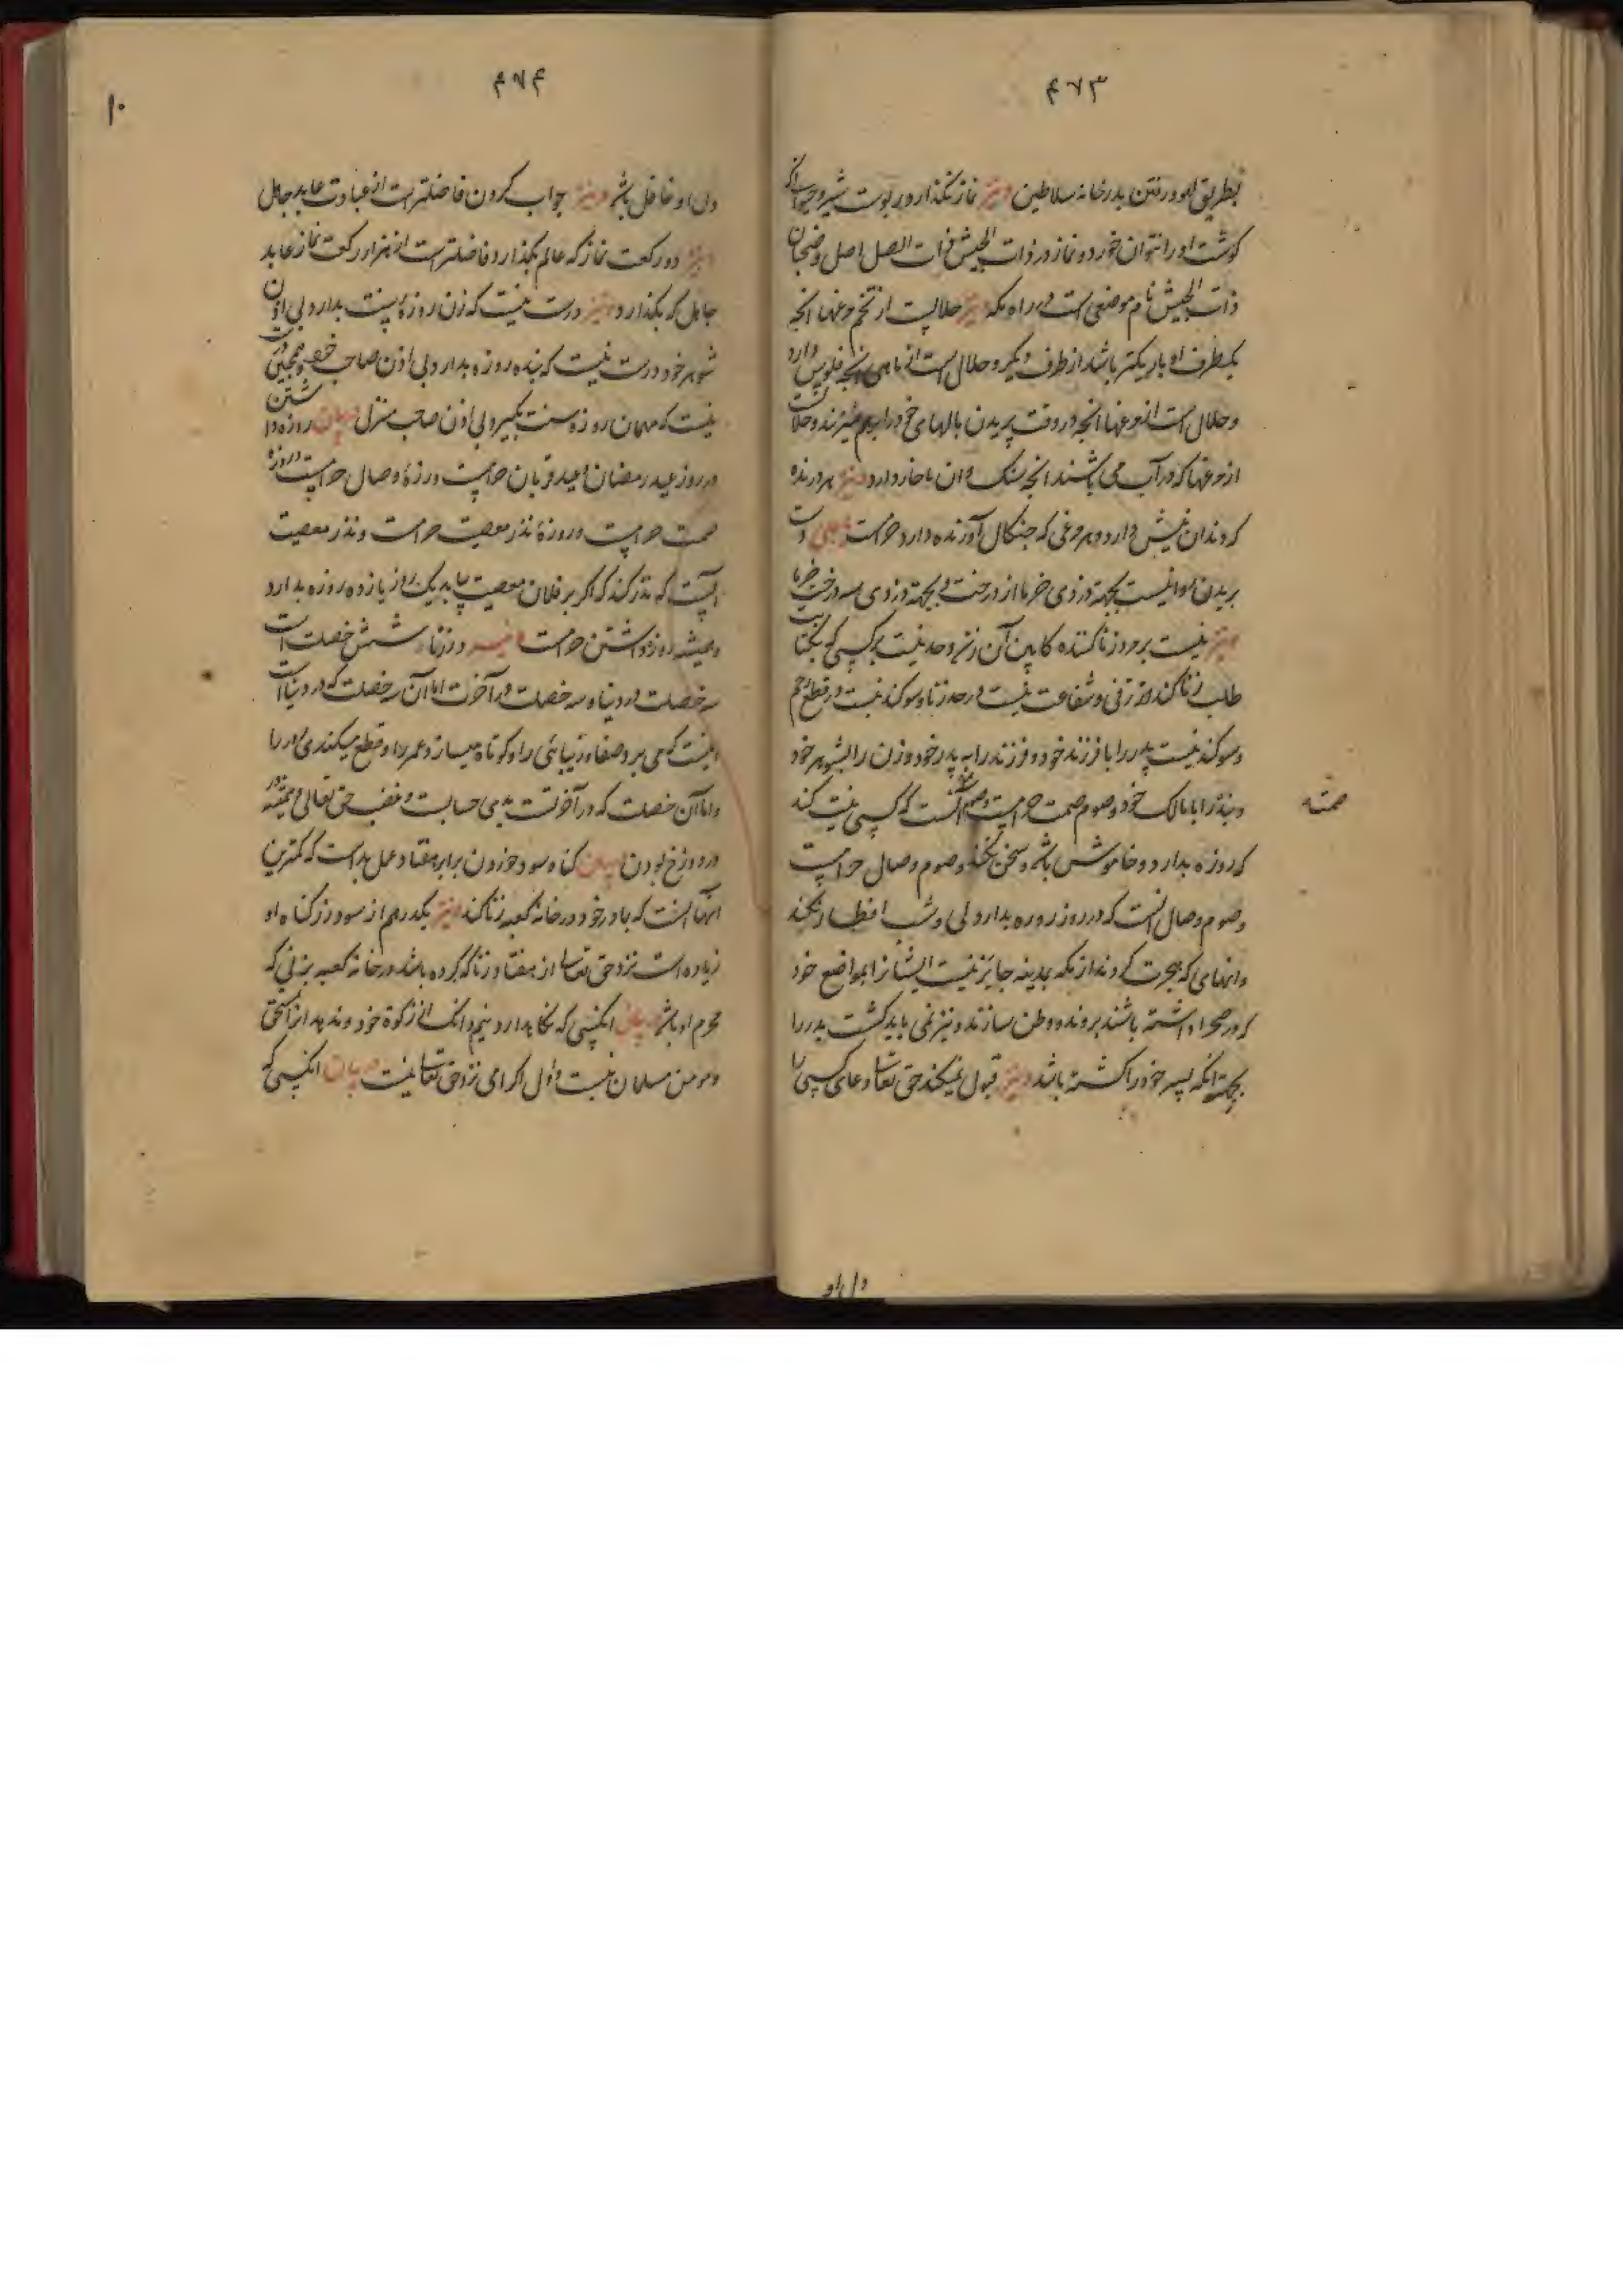 ۴۷۳
بطریق لهو و رفتن بدر خانه سلاطین و نیز نماز نگذارد در پوست شیر و حیوانی که
گوشت او را نتوان خورد و نماز در ذات الجیش و ذات الصلاصل و ضجنان
ذات الجیش نام موضعی است در راه مکه و نیز حلالیست از تخم مرغها انچه
یکطرف او باریکتر باشد از طرف دیگر و حلال است از ماهی انچه فلوس دارد
و حلال است از مرغها انچه در وقت پریدن بالهای خود را برهم میزنند و حلالست
از مرغها که در آب می باشند انچه سنگ دان یا خار دارد و نیز هر درنده
که دندان نیش دارد و هر مرغی که چنگال آورنده دارد حرامست و نیز دست
بریدن روا نیست بجهة دزدی خرما از درخت و بجهة دزدی سر درخت خرما
و نیز نیست بر مرد زنا کننده کابین آن زن و حد نیست بر کسی که بکنایت
طلب زنا کند از زنی و شفاعت نیست در حد زنا و سوگند نیست در قطع رحم
و سوگند نیست پدر را با فرزند خود و فرزند را به پدر خود و زن را بشوهر خود
و بنده را با مالک خود و صوم صمت حرامیست و صوم صمت آنست که کسی نیت کند
که روزه بدارد و خاموش باشد و سخن نکند و صوم وصال حرامیست
و صوم وصال آنست که در روز روزه بدارد ولی و شب افطار نکند
و انهای که هجرت کردند از مکه بمدینه جایز نیست ایشانرا بمواضع خود
که در صحرا داشته باشند بروند و وطن سازند و نیز نمی باید کشت پدر را
بجهة انکه پسر خود را کشته باشد و نیز قبول نمیکند حق تعالی دعای کسی را
صمته
دل او
۴۷۴
۱۰
دل او غافل باشد و نیز جواب کردن فاضلتر است از عبادت عابد جاهل
و نیز دو رکعت نماز که عالم بگذارد فاضلتر است از هزار رکعت نماز عابد
جاهل که بگذارد و نیز درست نیست که زن روزه سنت بدارد بی اذن
شوهر خود و درست نیست که بنده روزه بدارد بی اذن صاحب خود و همچنین درست
نیست که مهمان روزه سنت بگیرد بی اذن صاحب منزل و بیان روزه داشتن
در روز عید رمضان و عید قربان حرامیست و روزهٔ وصال حرامیست و روزهٔ
صمت حرامیست و روزهٔ نذر معصیت حرامست و نذر معصیت
آنست که نذر کند که اگر بر فلان معصیت یابد یک روز یا زده روزه بدارد
و همیشه روزه داشتن حرامست و نیز در زنا شش خصلت است
سه خصلت در دنیا و سه خصلت در آخرت اما آن سه خصلت که در دنیا است
اینست که می برد صفا و زیبائی را و کوتاه میسازد عمر را و قطع میکند روزی را
و اما آن خصلت که در آخرتست بدی حسابست و غضب حق تعالی و همیشه
در دوزخ بودن و بیان گناه سود خوردن برابر هفتاد عمل بد است که کمترین
انها آنست که با مادر خود در خانه کعبه زنا کند و نیز یکدرهم از سود در گناه او
زیاده است نزد حق تعالی از هفتاد زنا که کرده باشد در خانه کعبه بزنی که
محرم او باشد و بیان انکسی که نگا بدارد نیم دانگ از زکوة خود و ندهد انرا بمستحق
و مومن مسلمان نیست و اول اکرامی نزد حق تعالی نیست و بیان انکسی که